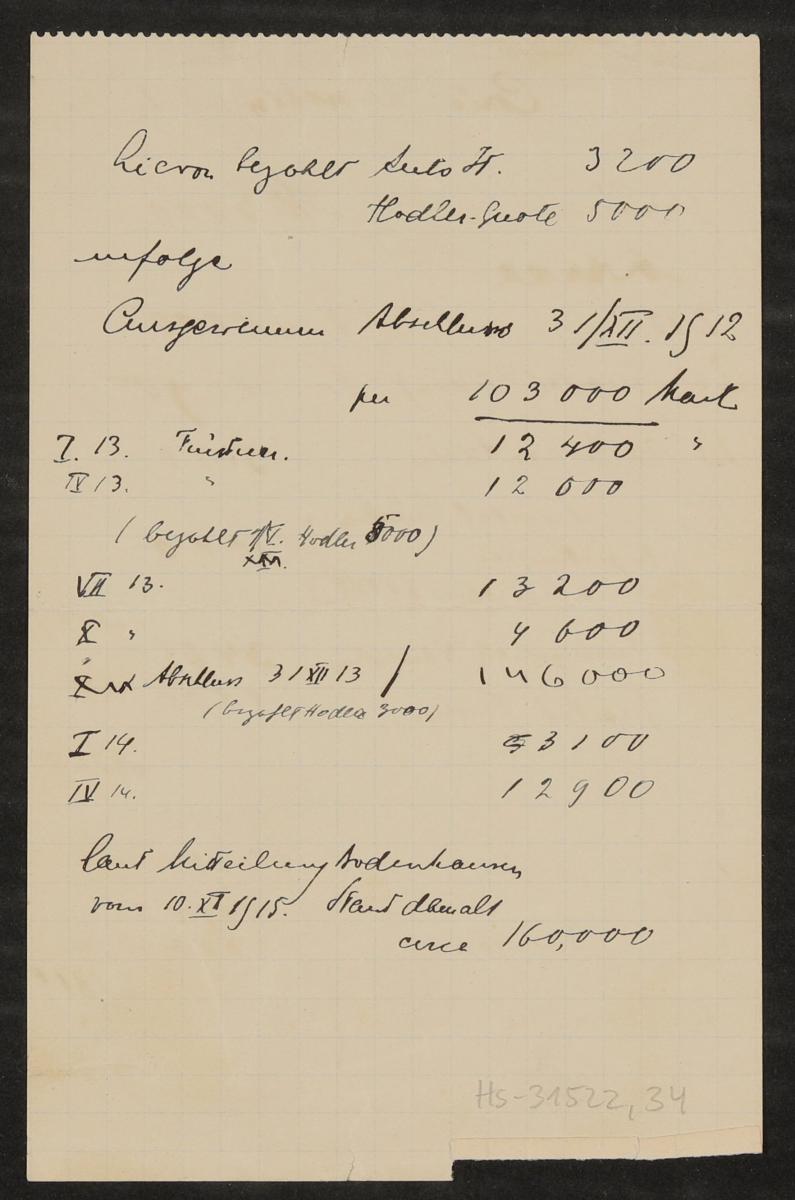 hievon bezahlt Auto St. 3200
Hodler-Quote 5000
infolge
Abschluss 31/XII. 1912
per 103 000 Mark
I. 13. Fürstner. 12 400 "
IV 13. " 12 000
(bezahlt IV. Hodler 5000)
VII 13. 13 200
X " 4 600
Abschluss 31 XII 13 / 146000
(bezahlt Hodler 3000)
I 14. 3100
IV 14. 12900
laut Mitteilung Bodenhausen
vom 10. XII 1915. Stand damals
circa 160,000
Hs-31522,34